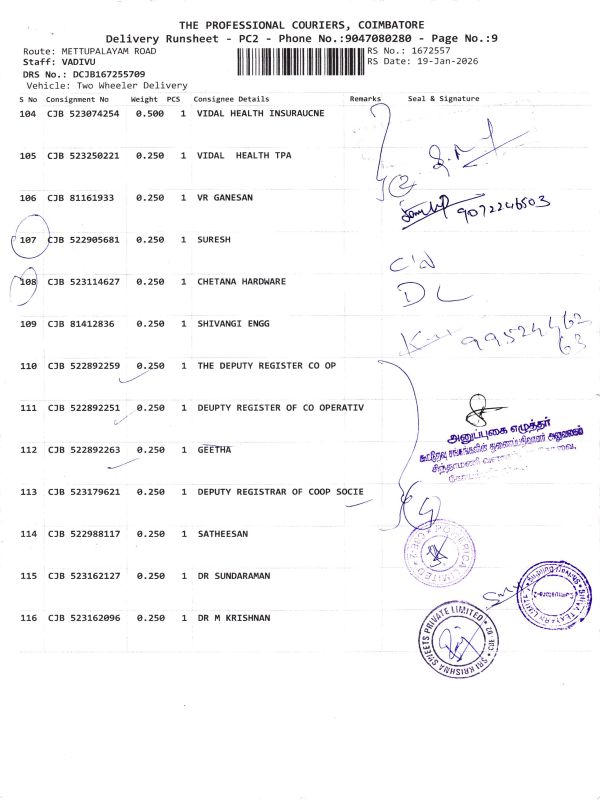 THE PROFESSIONAL COURIERS, COIMBATORE
Delivery Runsheet - PC2 - Phone No.:9047080280 - Page No.:9
Route: METTUPALAYAM ROAD RS No.: 1672557
Staff: VADIVU RS Date: 19-Jan-2026
DRS No.: DCJB167255709
Vehicle: Two Wheeler Delivery
S No Consignment No Weight PCS Consignee Details Remarks Seal & Signature
104 CJB 523074254 0.500 1 VIDAL HEALTH INSURAUCNE
105 CJB 523250221 0.250 1 VIDAL HEALTH TPA
106 CJB 81161933 0.250 1 VR GANESAN
9072246503
107 CJB 522905681 0.250 1 SURESH
108 CJB 523114627 0.250 1 CHETANA HARDWARE
DL
109 CJB 81412836 0.250 1 SHIVANGI ENGG
99524462
63
110 CJB 522892259 0.250 1 THE DEPUTY REGISTER CO OP
111 CJB 522892251 0.250 1 DEUPTY REGISTER OF CO OPERATIV
அனுப்புகை எழுத்தர்
112 CJB 522892263 0.250 1 GEETHA
113 CJB 523179621 0.250 1 DEPUTY REGISTRAR OF COOP SOCIE
114 CJB 522988117 0.250 1 SATHEESAN
115 CJB 523162127 0.250 1 DR SUNDARAMAN
116 CJB 523162096 0.250 1 DR M KRISHNAN
SRI KRISHNA SWEETS PRIVATE LIMITED